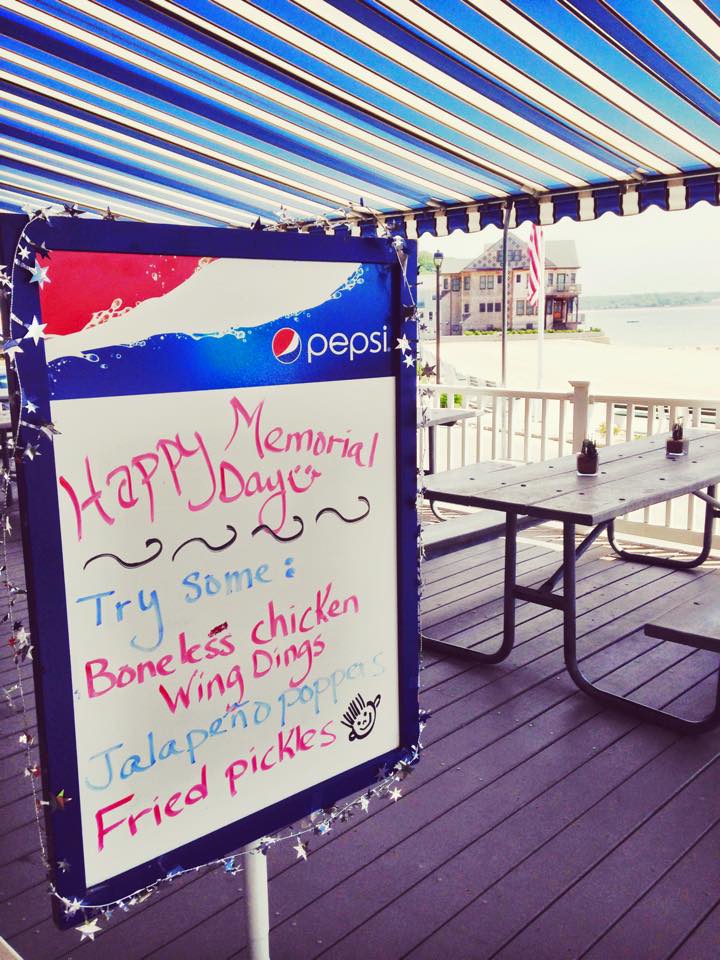 pepsi
Happy Memorial
Day
Try Some:
Boneless chicken
Wing Dings
Jalapeño poppers
Fried pickles